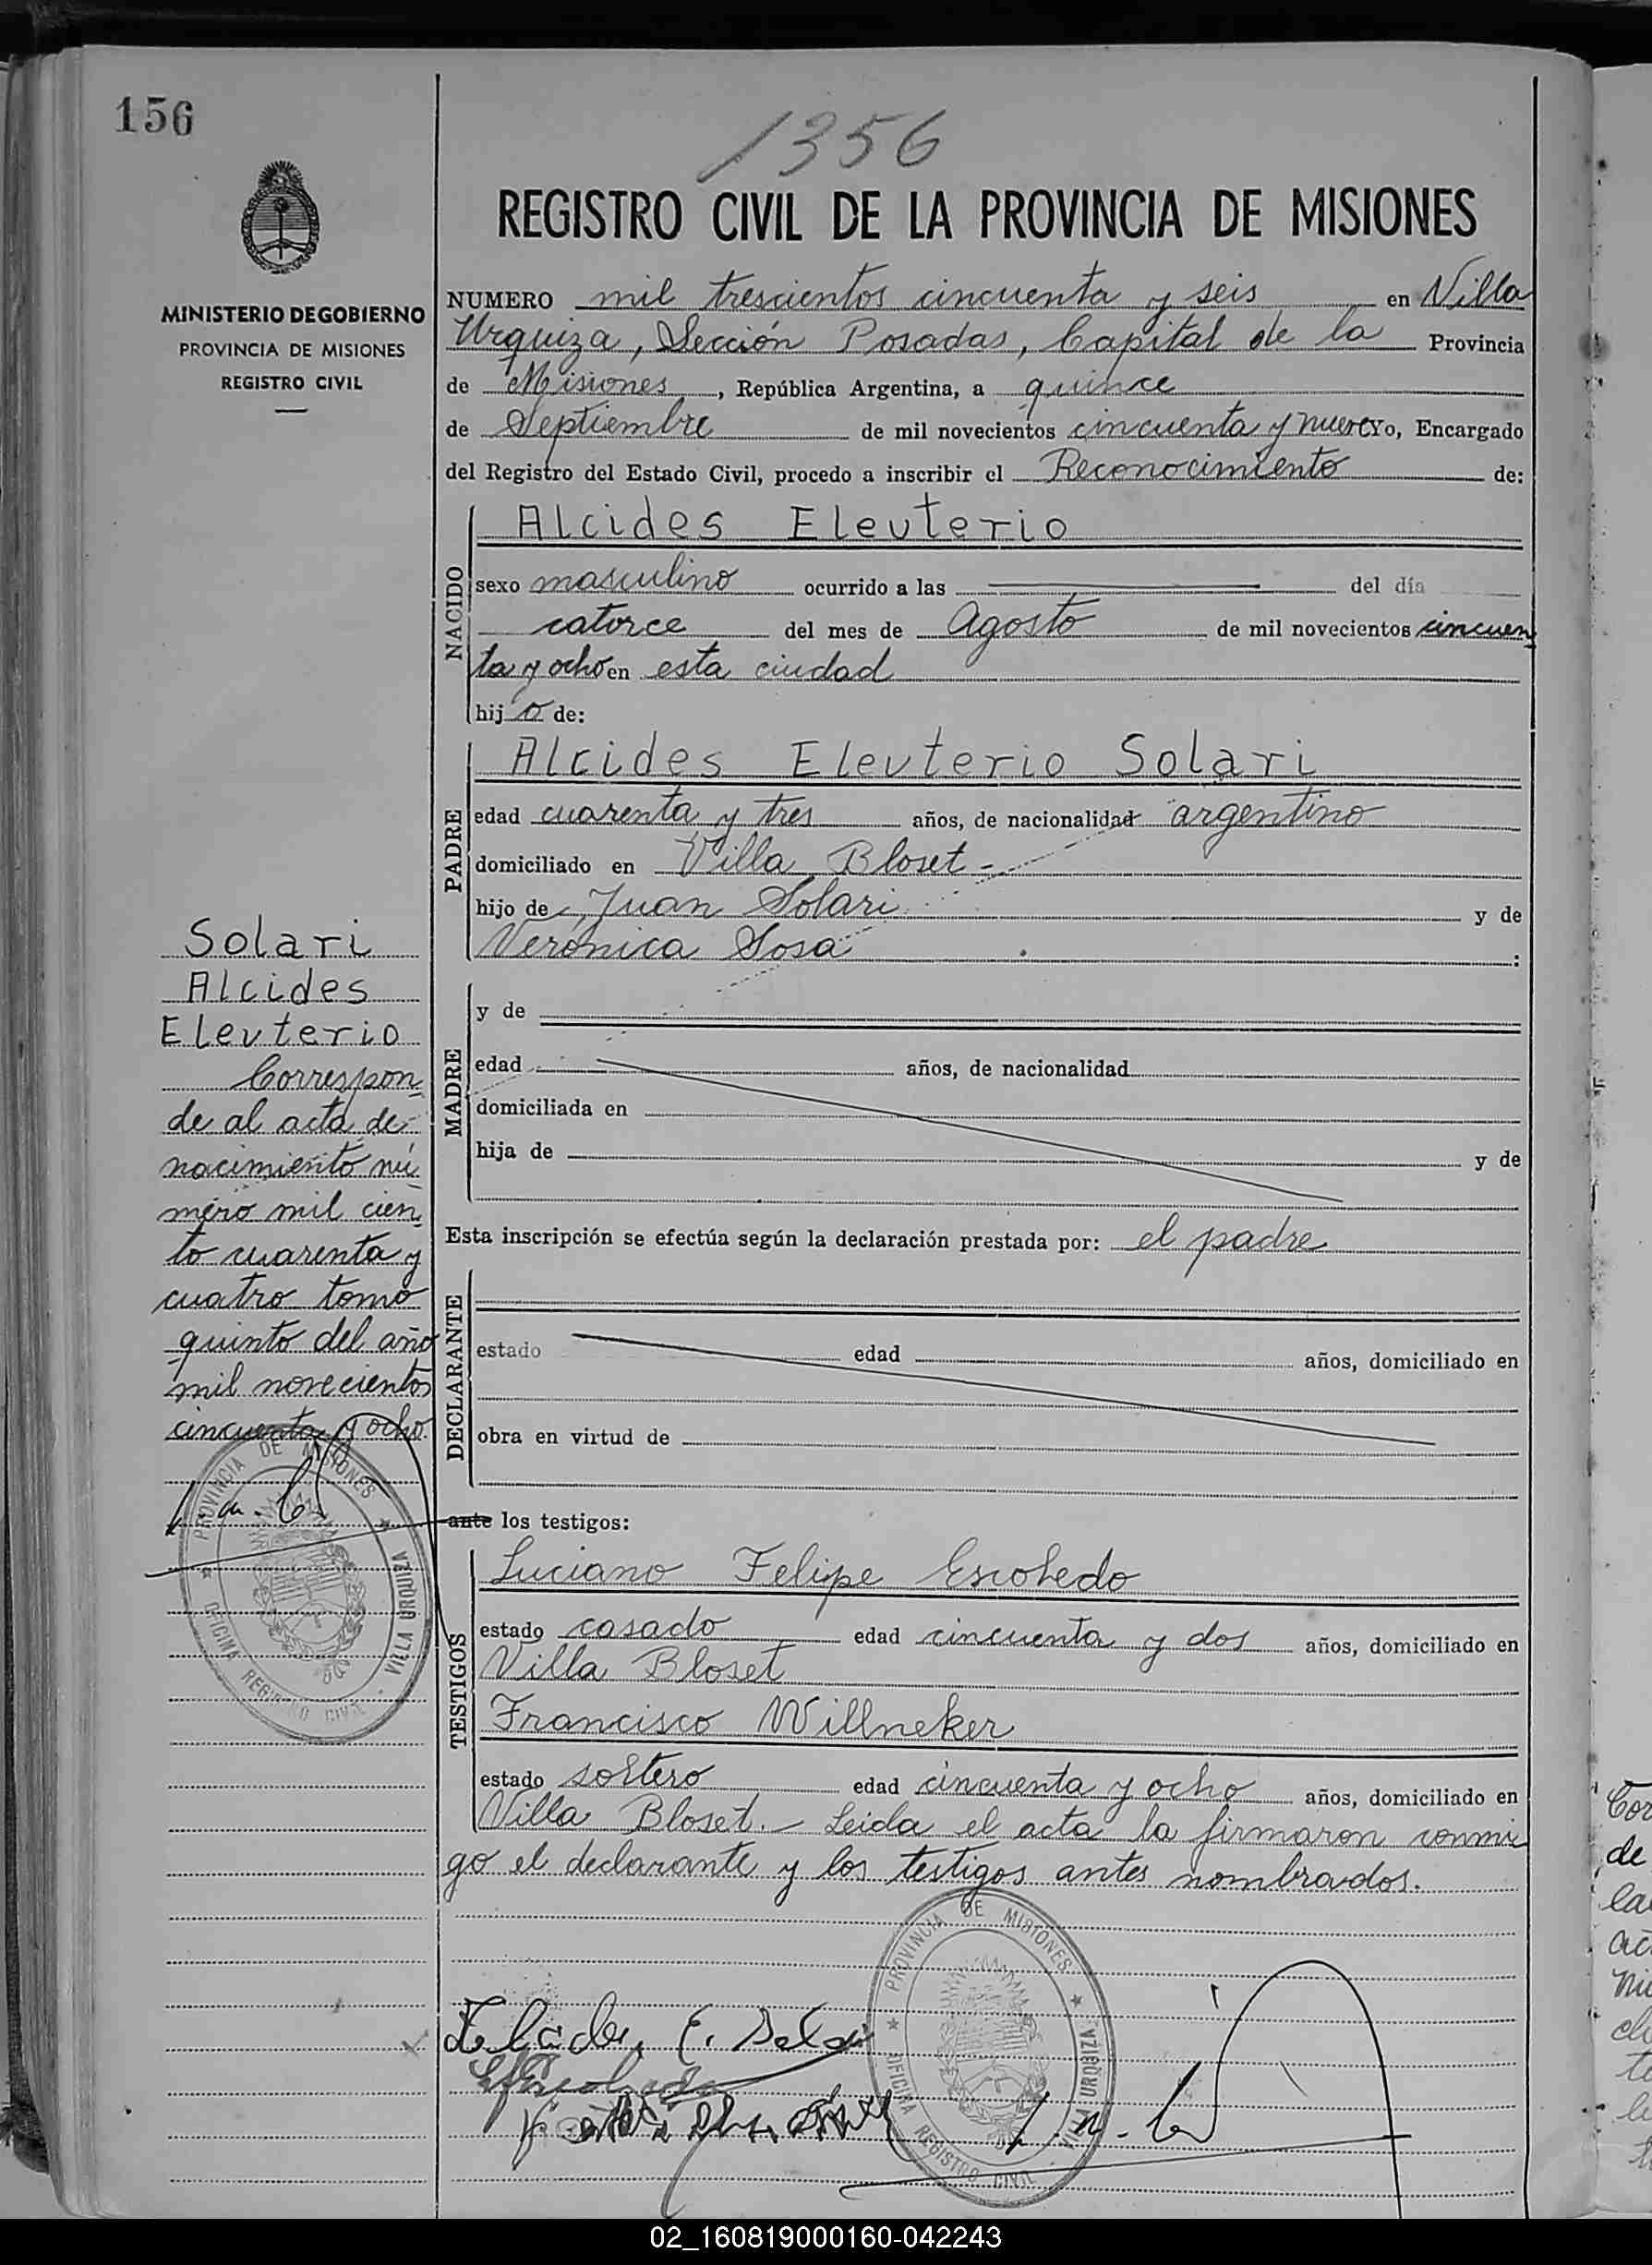 156
1356
REGISTRO CIVIL DE LA PROVINCIA DE MISIONES
MINISTERIO DE GOBIERNO
PROVINCIA DE MISIONES
REGISTRO CIVIL
NUMERO mil trescientos cincuenta y seis en Villa
Urquiza, Sección Posadas, Capital de la Provincia
de Misiones, República Argentina, a quince
de Septiembre de mil novecientos cincuenta y nueve Yo, Encargado
del Registro del Estado Civil, procedo a inscribir el Reconocimiento de:
NACIDO
Alcides Eleuterio
sexo masculino ocurrido a las del día
catorce del mes de Agosto de mil novecientos cincuen
ta y ocho en esta ciudad
hij o de:
PADRE
Alcides Eleuterio Solari
edad cuarenta y tres años, de nacionalidad argentino
domiciliado en Villa Bloset -
hijo de Juan Solari y de
Verónica Sosa :
MADRE
y de
edad años, de nacionalidad
domiciliada en
hija de y de
Esta inscripción se efectúa según la declaración prestada por: el padre
DECLARANTE
estado edad años, domiciliado en
obra en virtud de
ante los testigos:
TESTIGOS
Luciano Felipe Escobedo
estado casado edad cincuenta y dos años, domiciliado en
Villa Bloset
Francisco Willneker
estado soltero edad cincuenta y ocho años, domiciliado en
Villa Bloset. - Leida el acta la firmaron conmi
go el declarante y los testigos antes nombrados.
Solari
Alcides
Eleuterio
Correspon
de al acta de
nacimiento nú
mero mil cien
to cuarenta y
cuatro tomo
quinto del año
mil novecientos
cincuenta y ocho
PROVINCIA DE MISIONES
OFICINA REGISTRO CIVIL - VILLA URQUIZA
PROVINCIA DE MISIONES
OFICINA REGISTRO CIVIL - VILLA URQUIZA
Cor
de
la
ac
02_160819000160-042243